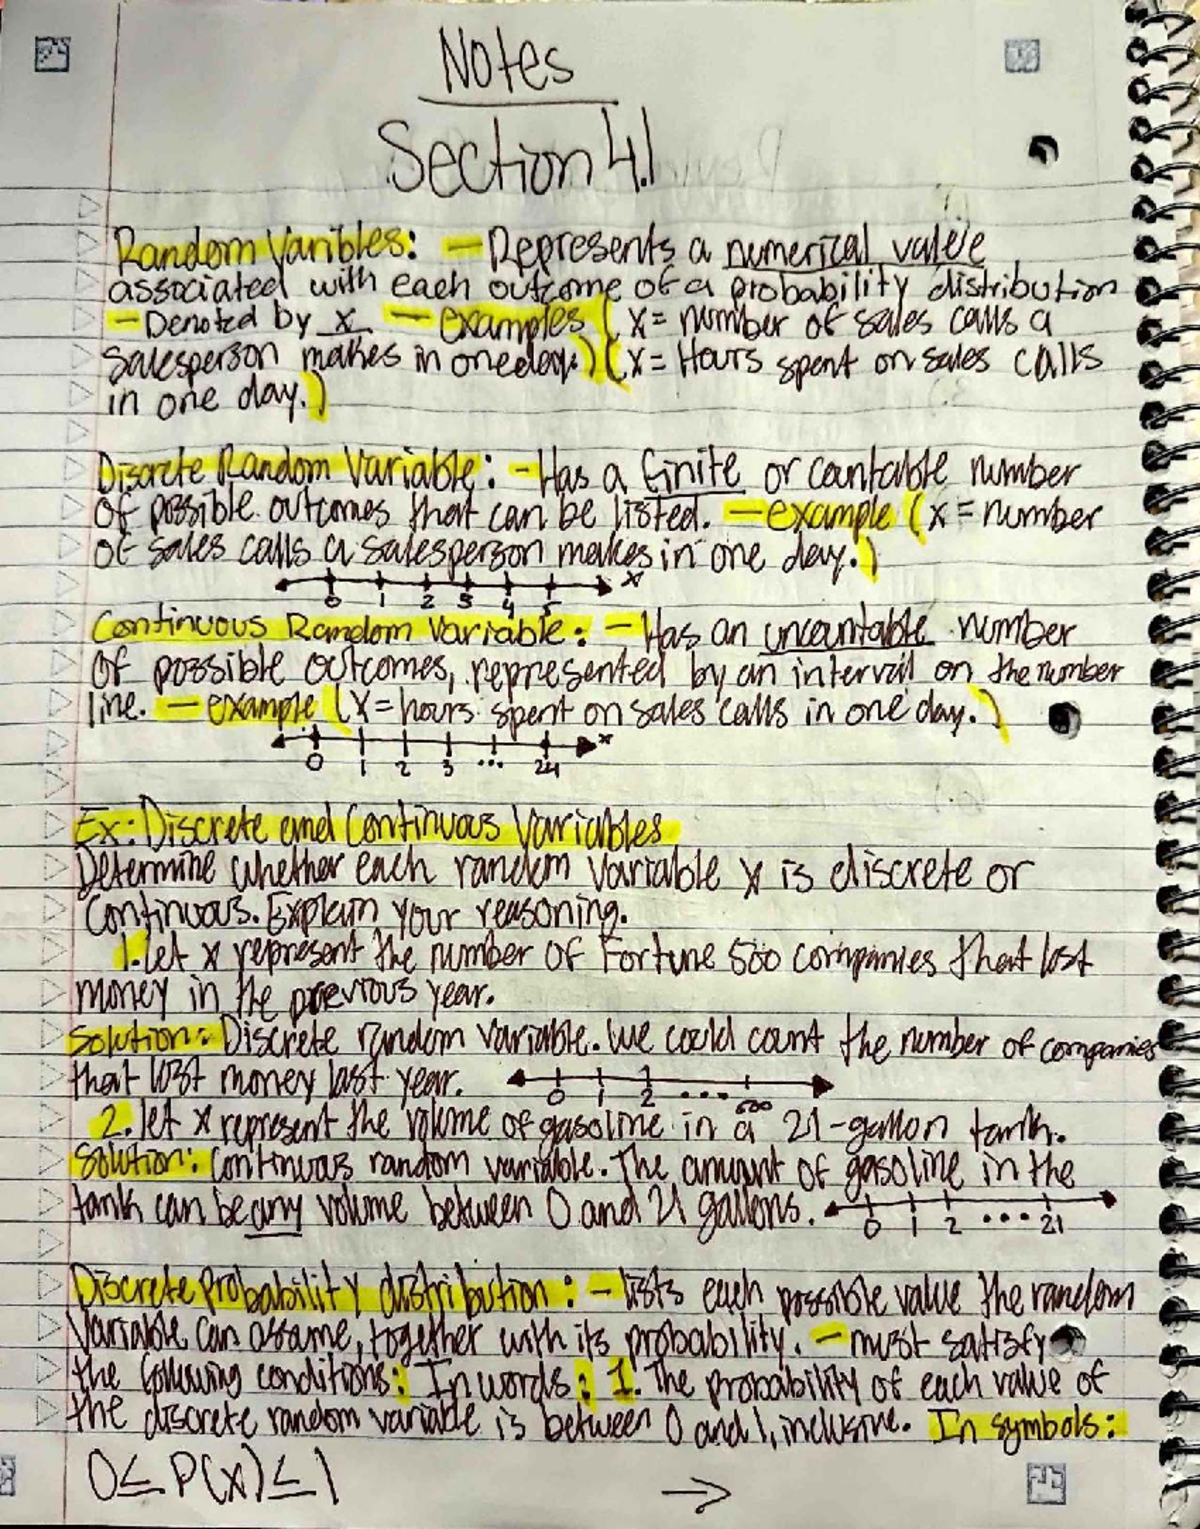 Notes
Section 4.1
Random Varibles: - Represents a numerical value
associated with each outcome of a probability distribution
- Denoted by x - examples (x = number of sales calls a
salesperson makes in one day.) (x = Hours spent on sales calls
in one day.)
Discrete Random Variable: - Has a finite or countable number
of possible outcomes that can be listed. - example (x = number
of sales calls a salesperson makes in one day.)
x
0 1 2 3 4 5
Continuous Random Variable: - Has an uncountable number
of possible outcomes, represented by an interval on the number
line. - example (x = hours spent on sales calls in one day.)
x
0 1 2 3 ... 24
Ex: Discrete and Continuous Variables
Determine whether each random variable x is discrete or
continuous. Explain your reasoning.
1. let x represent the number of Fortune 500 companies that lost
money in the previous year.
Solution: Discrete random variable. We could count the number of companies
that lost money last year.
0 1 2 ... 500
2. let x represent the volume of gasoline in a 21-gallon tank.
Solution: Continuous random variable. The amount of gasoline in the
tank can be any volume between 0 and 21 gallons.
0 1 2 ... 21
Discrete Probability distribution: - lists each possible value the random
variable can assume, together with its probability. - must satisfy
the following conditions: In words: 1. The probability of each value of
the discrete random variable is between 0 and 1, inclusive. In symbols:
0 ≤ P(x) ≤ 1 →